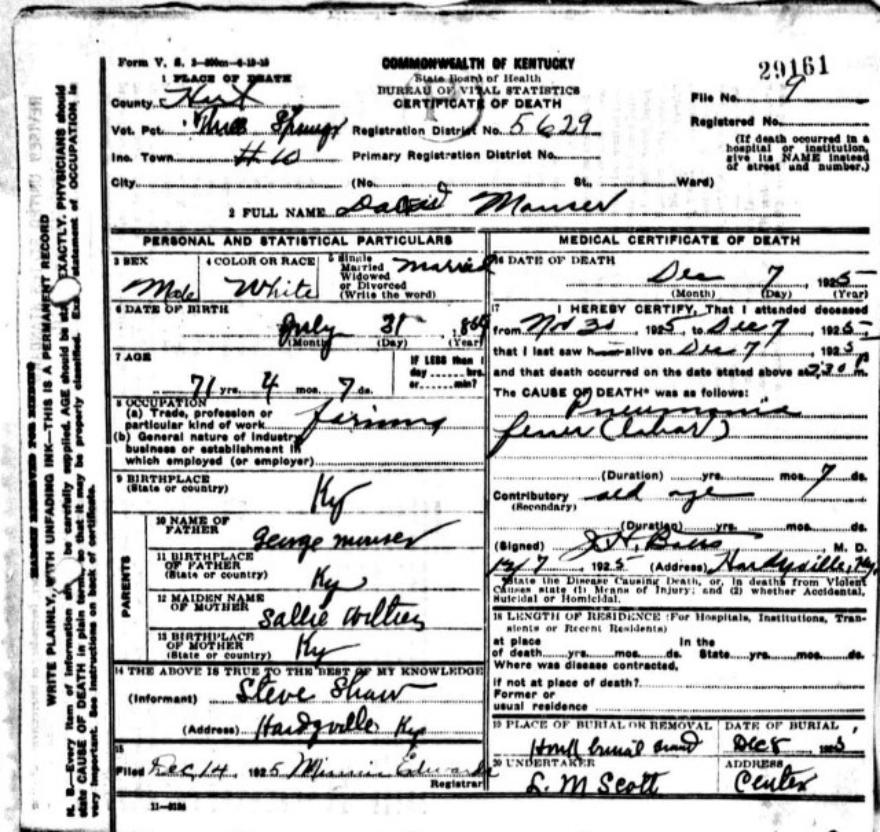 Form V. S.
COMMONWEALTH OF KENTUCKY
State Board of Health
BUREAU OF VITAL STATISTICS
CERTIFICATE OF DEATH
29161
File No. 9
Registered No.
(If death occurred in a hospital or institution, give its NAME instead of street and number.)
1 PLACE OF DEATH
County Hart
Vot. Pct. Three Springs Registration District No. 5629
Inc. Town #10 Primary Registration District No.
City (No. St., Ward)
2 FULL NAME Mouser
PERSONAL AND STATISTICAL PARTICULARS
3 SEX Male
4 COLOR OR RACE White
5 Single Married Widowed or Divorced (Write the word) Married
6 DATE OF BIRTH
July 31
(Month) (Day) (Year)
7 AGE
71 yrs. 4 mos. 7 ds.
IF LESS than 1 day hrs. or min?
8 OCCUPATION
(a) Trade, profession or particular kind of work
(b) General nature of industry business or establishment in which employed (or employer)
9 BIRTHPLACE
(State or country) Ky
PARENTS
10 NAME OF FATHER George mouser
11 BIRTHPLACE OF FATHER
(State or country) Ky
12 MAIDEN NAME OF MOTHER Sallie
13 BIRTHPLACE OF MOTHER
(State or country) Ky
14 THE ABOVE IS TRUE TO THE BEST OF MY KNOWLEDGE
(Informant) Steve Shaw
(Address) Hardyville Ky
15
Filed Dec 14, 1925 Minnie Edwards
Registrar
11-3184
MEDICAL CERTIFICATE OF DEATH
16 DATE OF DEATH
Dec 7, 1925
(Month) (Day) (Year)
17 I HEREBY CERTIFY, That I attended deceased
from 1925 to Dec 7, 1925
that I last saw alive on Dec 7, 1925
and that death occurred on the date stated above at 7:30 P m.
The CAUSE OF DEATH* was as follows:
Pneumonia
fever (Lobar)
(Duration) yrs. mos. 7 ds.
Contributory old age
(Secondary)
(Duration) yrs. mos. ds.
(Signed) J. H. M. D.
12/7, 1925 (Address) Hardyville, Ky.
*State the Disease Causing Death, or, in deaths from Violent Causes state (1) Means of Injury; and (2) whether Accidental, Suicidal or Homicidal.
18 LENGTH OF RESIDENCE (For Hospitals, Institutions, Transients or Recent Residents)
at place of death yrs. mos. ds. In the State yrs. mos. ds.
Where was disease contracted,
if not at place of death?
Former or
usual residence
19 PLACE OF BURIAL OR REMOVAL
burial
DATE OF BURIAL
Dec 8 1925
20 UNDERTAKER
L. M Scott
ADDRESS
Center
MARGIN RESERVED FOR BINDING
WRITE PLAINLY, WITH UNFADING INK—THIS IS A PERMANENT RECORD
N. B.—Every item of information should be carefully supplied. AGE should be stated EXACTLY. PHYSICIANS should
state CAUSE OF DEATH in plain terms, so that it may be properly classified. Exact statement of OCCUPATION is
very important. See instructions on back of certificate.